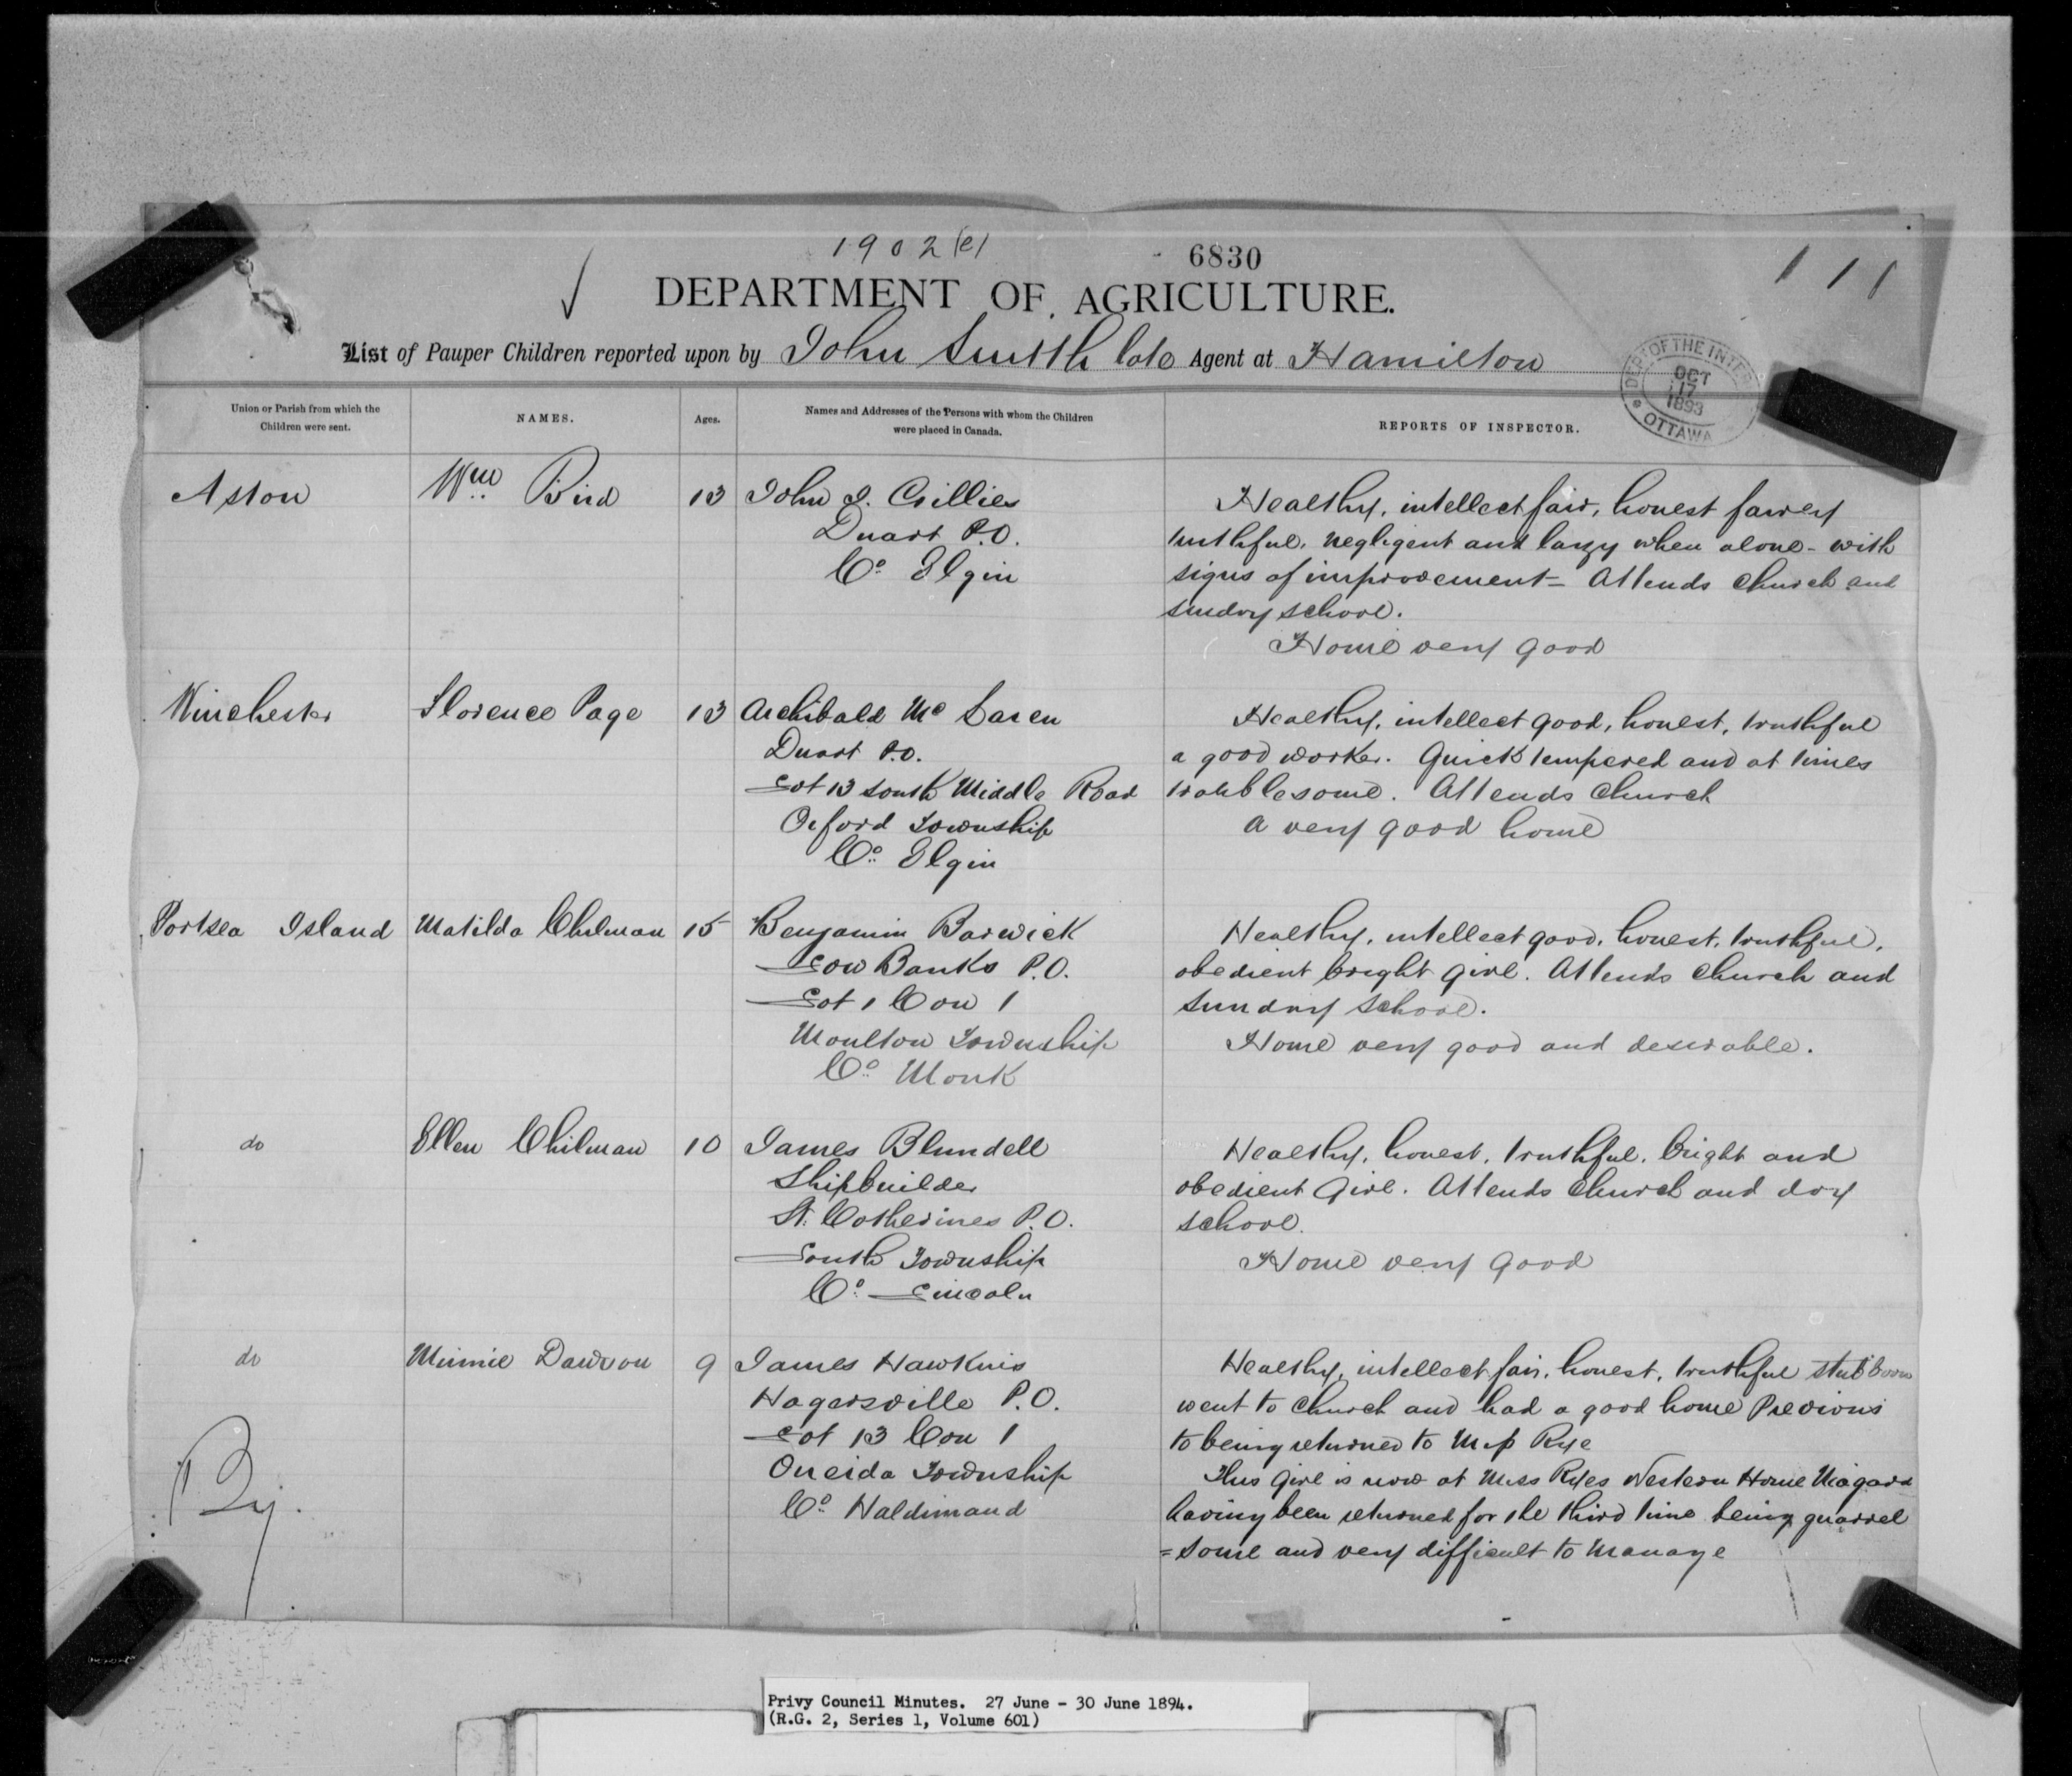 1902(e)
6830
111
DEPARTMENT OF AGRICULTURE.
List of Pauper Children reported upon by John Smith late Agent at Hamilton
DEPT OF THE INTER
OCT
17
1893
OTTAWA
Union or Parish from which the
Children were sent.
NAMES.
Ages.
Names and Addresses of the Persons with whom the Children
were placed in Canada.
REPORTS OF INSPECTOR.
Aston
Wm Bird
13
John J. Gillies
Duart P.O.
Co Elgin
Healthy, intellect fair, honest fairly
truthful, negligent and lazy when alone - with
signs of improvement - Attends Church and
sunday school.
Home very good
Winchester
Florence Page
13
Archibald Mc Laren
Duart P.O.
Lot 13 South Middle Road
Orford Township
Co Elgin
Healthy, intellect good, honest, truthful
a good worker. Quick tempered and at times
troublesome. Attends Church
A very good home
Portsea Island
Matilda Chilman
15
Benjamin Barwick
Low Banks P.O.
Lot 1 Con 1
Moulton Township
Co Monk
Healthy, intellect good, honest, truthful,
obedient bright girl. Attends Church and
Sunday School.
Home very good and desirable.
do
Ellen Chilman
10
James Blundell
Shipbuilder
St. Catherines P.O.
South Township
Co Lincoln
Healthy, honest, truthful, bright and
obedient Girl. Attends Church and day
school.
Home very good
do
Minnie Dawson
9
James Hawkins
Hagersville P.O.
Lot 13 Con 1
Oneida Township
Co Haldimand
Healthy, intellect fair, honest, truthful stubborn
went to Church and had a good home Previous
to being returned to Miss Rye
This Girl is now at Miss Ryes Western Home Niagara
having been returned for the third time being quarrel
=some and very difficult to Manage
Privy Council Minutes. 27 June - 30 June 1894.
(R.G. 2, Series 1, Volume 601)